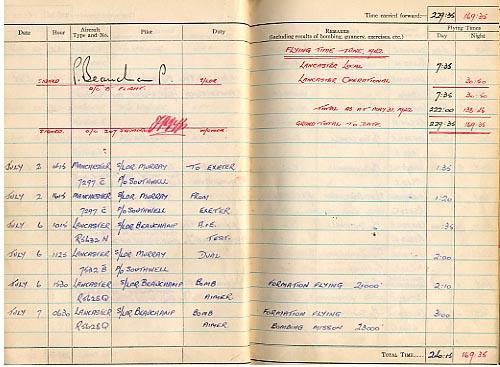 Time carried forward:— 229:35 169:35
Date Hour Aircraft Type and No. Pilot Duty REMARKS Flying Times
(including results of bombing, gunnery, exercises, etc.) Day Night
FLYING TIME – JUNE, 1942.
LANCASTER LOCAL 7:35
LANCASTER OPERATIONAL 30:50
SIGNED P. Beauchamp S/LDR
O/C B FLIGHT.
7:35 30:50
TOTAL AS AT MAY 31, 1942 222:00 138:45
GRAND TOTAL TO DATE 229:35 169:35
SIGNED. O/C 207 SQUADRON
JULY 2 MANCHESTER S/LDR MURRAY TO EXETER 1:35
7297 C P/O SOUTHWELL
JULY 2 MANCHESTER S/LDR MURRAY FROM 1:20
7297 C P/O SOUTHWELL EXETER
JULY 6 1015 LANCASTER S/LDR BEAUCHAMP :35
R5632 N TEST.
JULY 6 1125 LANCASTER S/LDR MURRAY DUAL 2:00
B P/O SOUTHWELL
JULY 6 LANCASTER S/LDR BEAUCHAMP BOMB FORMATION FLYING 2:10
R5628 Q AIMER
JULY 7 0630 LANCASTER S/LDR BEAUCHAMP BOMB FORMATION FLYING 3:00
R5628 Q AIMER BOMBING MISSON
TOTAL TIME.... 169:35